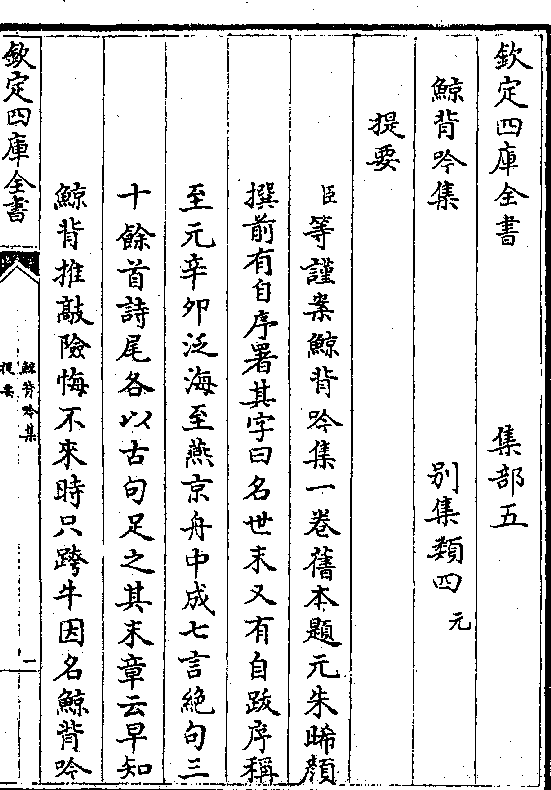 欽定四庫全書 集部五
鯨背吟集 别集類四元
提要
臣等謹案鯨背吟集一卷舊本題元朱晞顔
撰前有自序署其字曰名世末又有自跋序稱
至元辛卯泛海至燕京舟中成七言絶句三
十餘首詩尾各以古句足之其末章云早知
鯨背推敲險悔不來時只跨牛因名鯨背吟
欽定四庫全書
鯨背吟集
提要
一